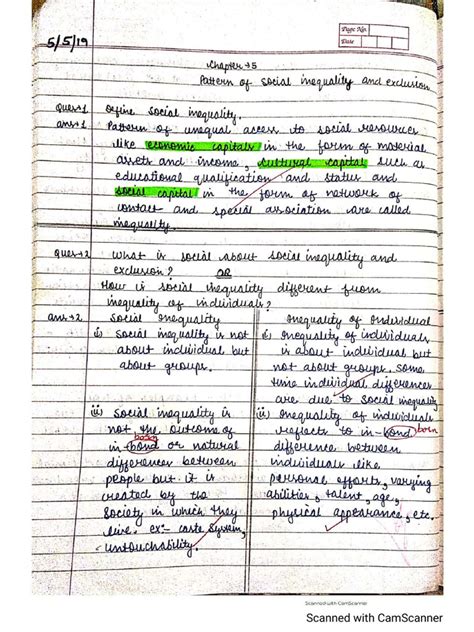 Page No.
Date
5/5/19
Chapter → 5
Pattern of social inequality and exclusion
Ques→1 Define social inequality.
ans→1 Pattern of unequal access to social resources
like economic capitals in the form of material
assets and income, cultural capital such as
educational qualification and status and
social capital in the form of network of
contact and special association are called
inequality.
Ques→2 What is social about social inequality and
exclusion? OR
How is social inequality different from
inequality of individuals?
ans→2 Social Inequality
(i) Social inequality is not
about individual but
about groups.
(ii) Social inequality is
not the outcome of
born
in-bond or natural
differences between
people but it is
created by the
Society in which they
live. ex:- caste System,
untouchability.
Inequality of Individual
(i) Inequality of individuals
is about individual but
not about groups. Some
time individual differences
are due to social inequality
(ii) Inequality of individuals
reflects to in-bond born
difference between
individuals like
personal efforts, varying
abilities, talent, age,
physical appearance, etc.
Scanned with CamScanner
Scanned with CamScanner